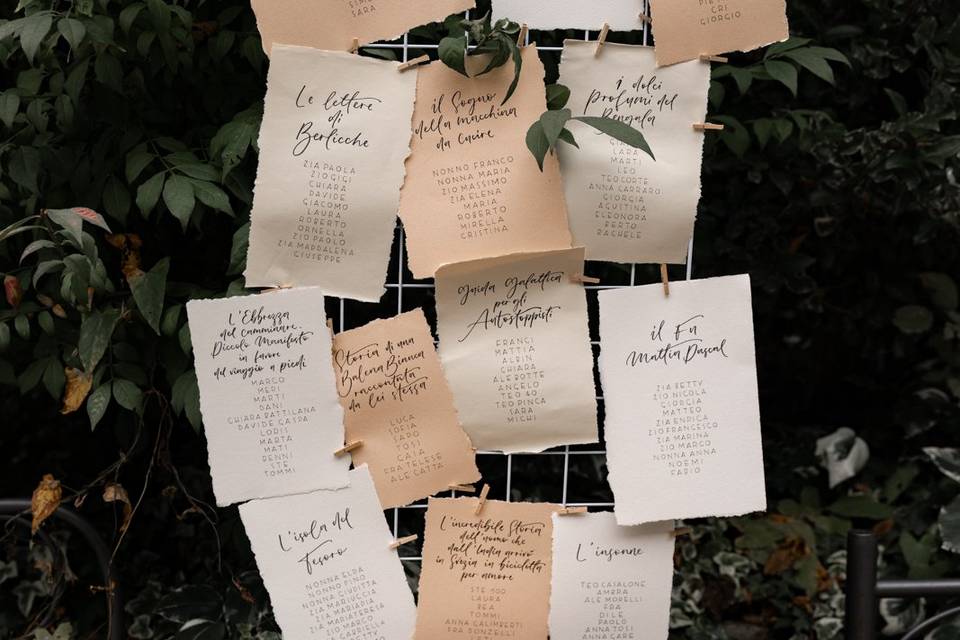 SARA
CRI
GIORGIO
Le lettere
di
Berlicche
ZIA PAOLA
ZIO GIGI
CHIARA
DAVIDE
GIACOMO
LAURA
ROBERTO
ORNELLA
ZIO PAOLO
ZIA MADDALENA
GIUSEPPE
il Sogno
della macchina
da cucire
NONNO FRANCO
NONNA MARIA
ZIO MASSIMO
ZIA ELENA
MARIA
ROBERTO
MIRELLA
CRISTINA
I dolci
profumi del
Bengala
LARA
MARTI
LEO
TEO CORTE
ANNA CARRARO
GIORGIA
AGUSTINA
ELEONORA
BERTO
RACHELE
L'Ebbrezza
del camminare.
Piccolo Manifesto
in favore
del viaggio a piedi
MARCO
MERI
MARTI
DANI
CHIARA PATTILANA
DAVIDE GASPA
LORIS
MARTA
MATI
DENNI
STE
TOMMI
Storia di una
Balena Bianca
raccontata
da lei stessa
LUCA
SARO
TOSI
GAIA
FRATELESE
ALE CATTA
Guida Galattica
per gli
Autostoppisti
FRANCI
MATTIA
ALBIN
CHIARA
ALE BOTTE
ANGELO
TEO 40
TEO PINCA
SARA
MICHI
il Fu
Mattia Pascal
ZIA BETTY
ZIO NICOLA
GIORGIA
MATTEO
ZIA ENRICA
ZIO FRANCESCO
ZIA MARINA
ZIO MARCO
NONNA ANNA
NOEMI
FABIO
L'isola del
Tesoro
NONNA ELDA
NONNO PINO
NONNA GIUDITTA
ZIA MARIUCCIA
ZIA MARIAPIA
ZIA MARIATERESA
ZIO MARCO
GABRIELLA
BETTY
L'incredibile Storia
dell'uomo che
dall'India arrivò
in Svezia in bicicletta
per amore
STE 900
LAURA
BEA
TOMMI
ANNA GALIMBERTI
FRA DONZELLI
L'insonne
TEO CASALONE
AMBRA
ALE MORELLI
FRA
DILE
PAOLO
ANNA TOSI
ANNA GARE